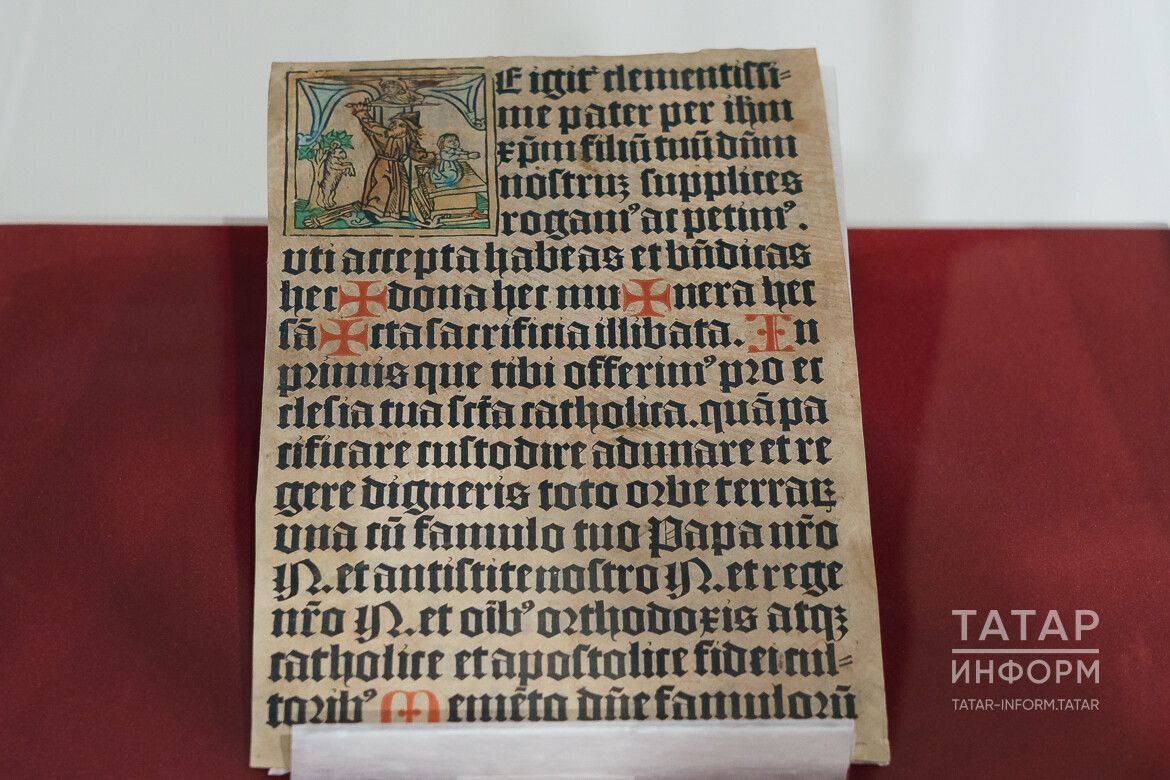 E igit᷑ clementiſſi=
me pater per ihm̄
xp̄m filiū tuū dūm
noſtruꝫ ſupplices
rogamꝰ ac petimꝰ.
vti accepta habeas et bn̄dicas
hec ✠ dona hec mu ✠ nera hec
ſā ✠ cta ſacrificia illibata. In
primis que tibi offerimꝰ pro ec
cleſia tua ſctā catholica. quā pa
cificare cuſtodire adunare et re
gere digneris toto orbe terraꝝ
vna cū famulo tuo Papa nr̄o
N. et antiſtite noſtro N. et rege
nr̄o N. et oīb᷒ orthodoxis atqꝫ
catholice et apoſtolice fidei cul=
torib᷒ Memēto dn̄e famulorū
ТАТАР
ИНФОРМ
TATAR-INFORM.TATAR